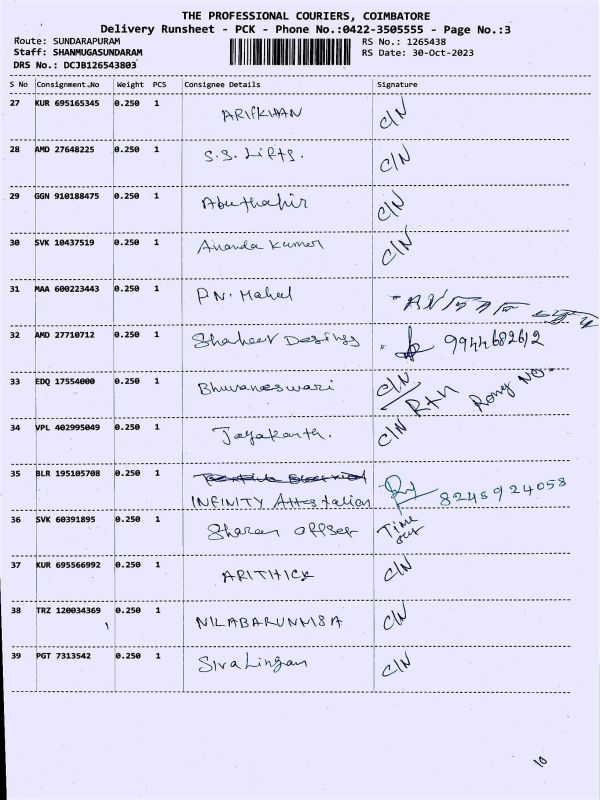 THE PROFESSIONAL COURIERS, COIMBATORE
Delivery Runsheet - PCK - Phone No.:0422-3505555 - Page No.:3
Route: SUNDARAPURAM RS No.: 1265438
Staff: SHANMUGASUNDARAM RS Date: 30-Oct-2023
DRS No.: DCJB126543803
S No Consignment.No Weight PCS Consignee Details Signature
27 KUR 695165345 0.250 1 ARIFKHAN C/N
28 AMD 27648225 0.250 1 S.S. Lifts. C/N
29 GGN 910188475 0.250 1 Abuthahir C/N
30 SVK 10437519 0.250 1 Ananda Kumar C/N
31 MAA 600223443 0.250 1 P.N. Mahal
32 AMD 27710712 0.250 1 Shaheer Desings 9944682612
33 EDQ 17554000 0.250 1 Bhuvaneswari C/N RTN Rong NO.
34 VPL 402995049 0.250 1 Jayakanth. C/N
35 BLR 195105708 0.250 1
INFINITY Attestation 8248924058
36 SVK 60391895 0.250 1 Sharan offset Time
out
37 KUR 695566992 0.250 1 ARITHICK C/N
38 TRZ 120034369 0.250 1 NILABARUNNISA C/N
39 PGT 7313542 0.250 1 Siva Lingan C/N
10